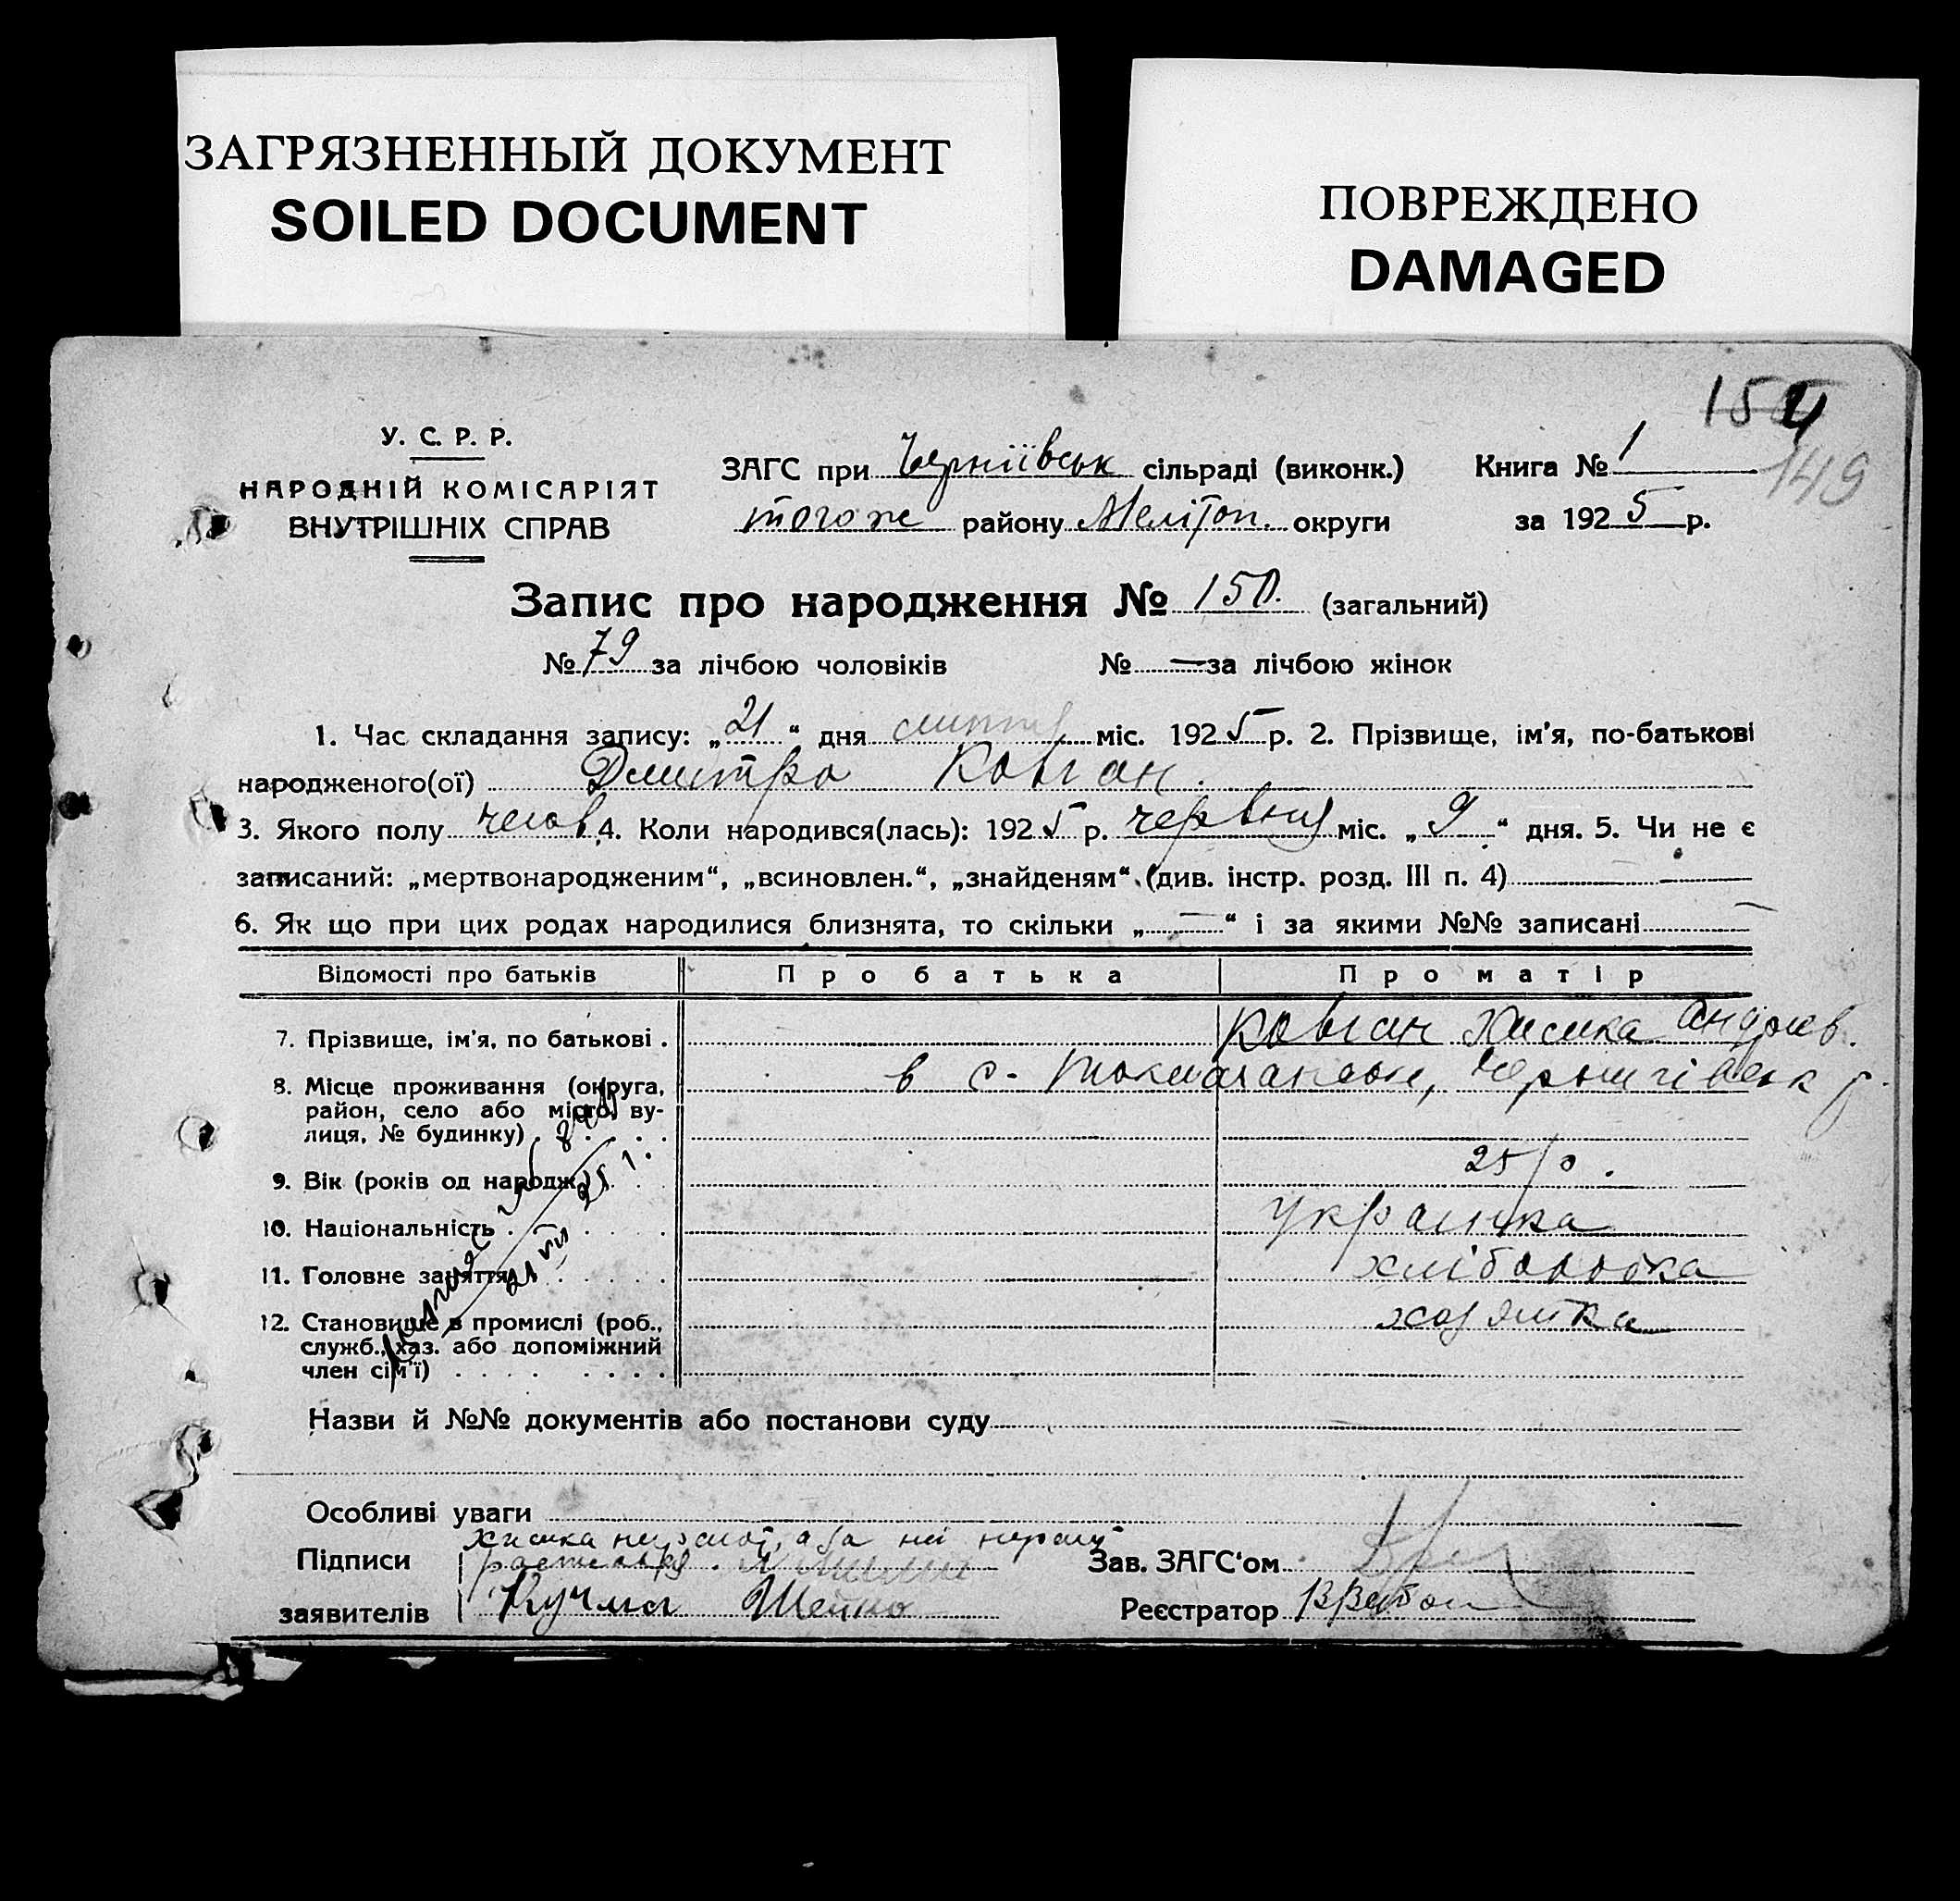 ЗАГРЯЗНЕННЫЙ ДОКУМЕНТ
SOILED DOCUMENT
ПОВРЕЖДЕНО
DAMAGED
149
У. С. Р. Р.
НАРОДНІЙ КОМІСАРІЯТ
ВНУТРІШНІХ СПРАВ
ЗАГС при сільраді (виконк.)
того же району Мелітоп. округи
Книга № 1
за 1925 р.
Запис про народження № 150. (загальний)
№ 79 за лічбою чоловіків № — за лічбою жінок
1. Час складання запису: „21“ дня міс. 1925 р. 2. Прізвище, ім’я, по-батькові
народженого(ої) Дмитро Ковган.
3. Якого полу чолов. 4. Коли народився(лась): 1925 р. червня міс. „9“ дня. 5. Чи не є
записаний: „мертвонародженим“, „всиновлен.“, „знайденям“ (див. інстр. розд. III п. 4) —
6. Як що при цих родах народилися близнята, то скільки „—“ і за якими №№ записані —
Відомості про батьків Про батька Про матір
7. Прізвище, ім’я, по батькові . Ковган Химка Андріев.
8. Місце проживання (округа,
район, село або місто, ву-
лиця, № будинку) . . . .
в с.
9. Вік (років од народж.) . . . 25 р.
10. Національність . . . . . украинка
11. Головне заняття . . . . . хліборобка
12. Становище в промислі (роб.,
служб., хаз. або допоміжний
член сім’ї) . . . . . . . .
хозяйка
Назви й №№ документів або постанови суду
Особливі уваги
Химка
Підписи
заявителів
Кучма
Зав. ЗАГС‘ом
Реєстратор